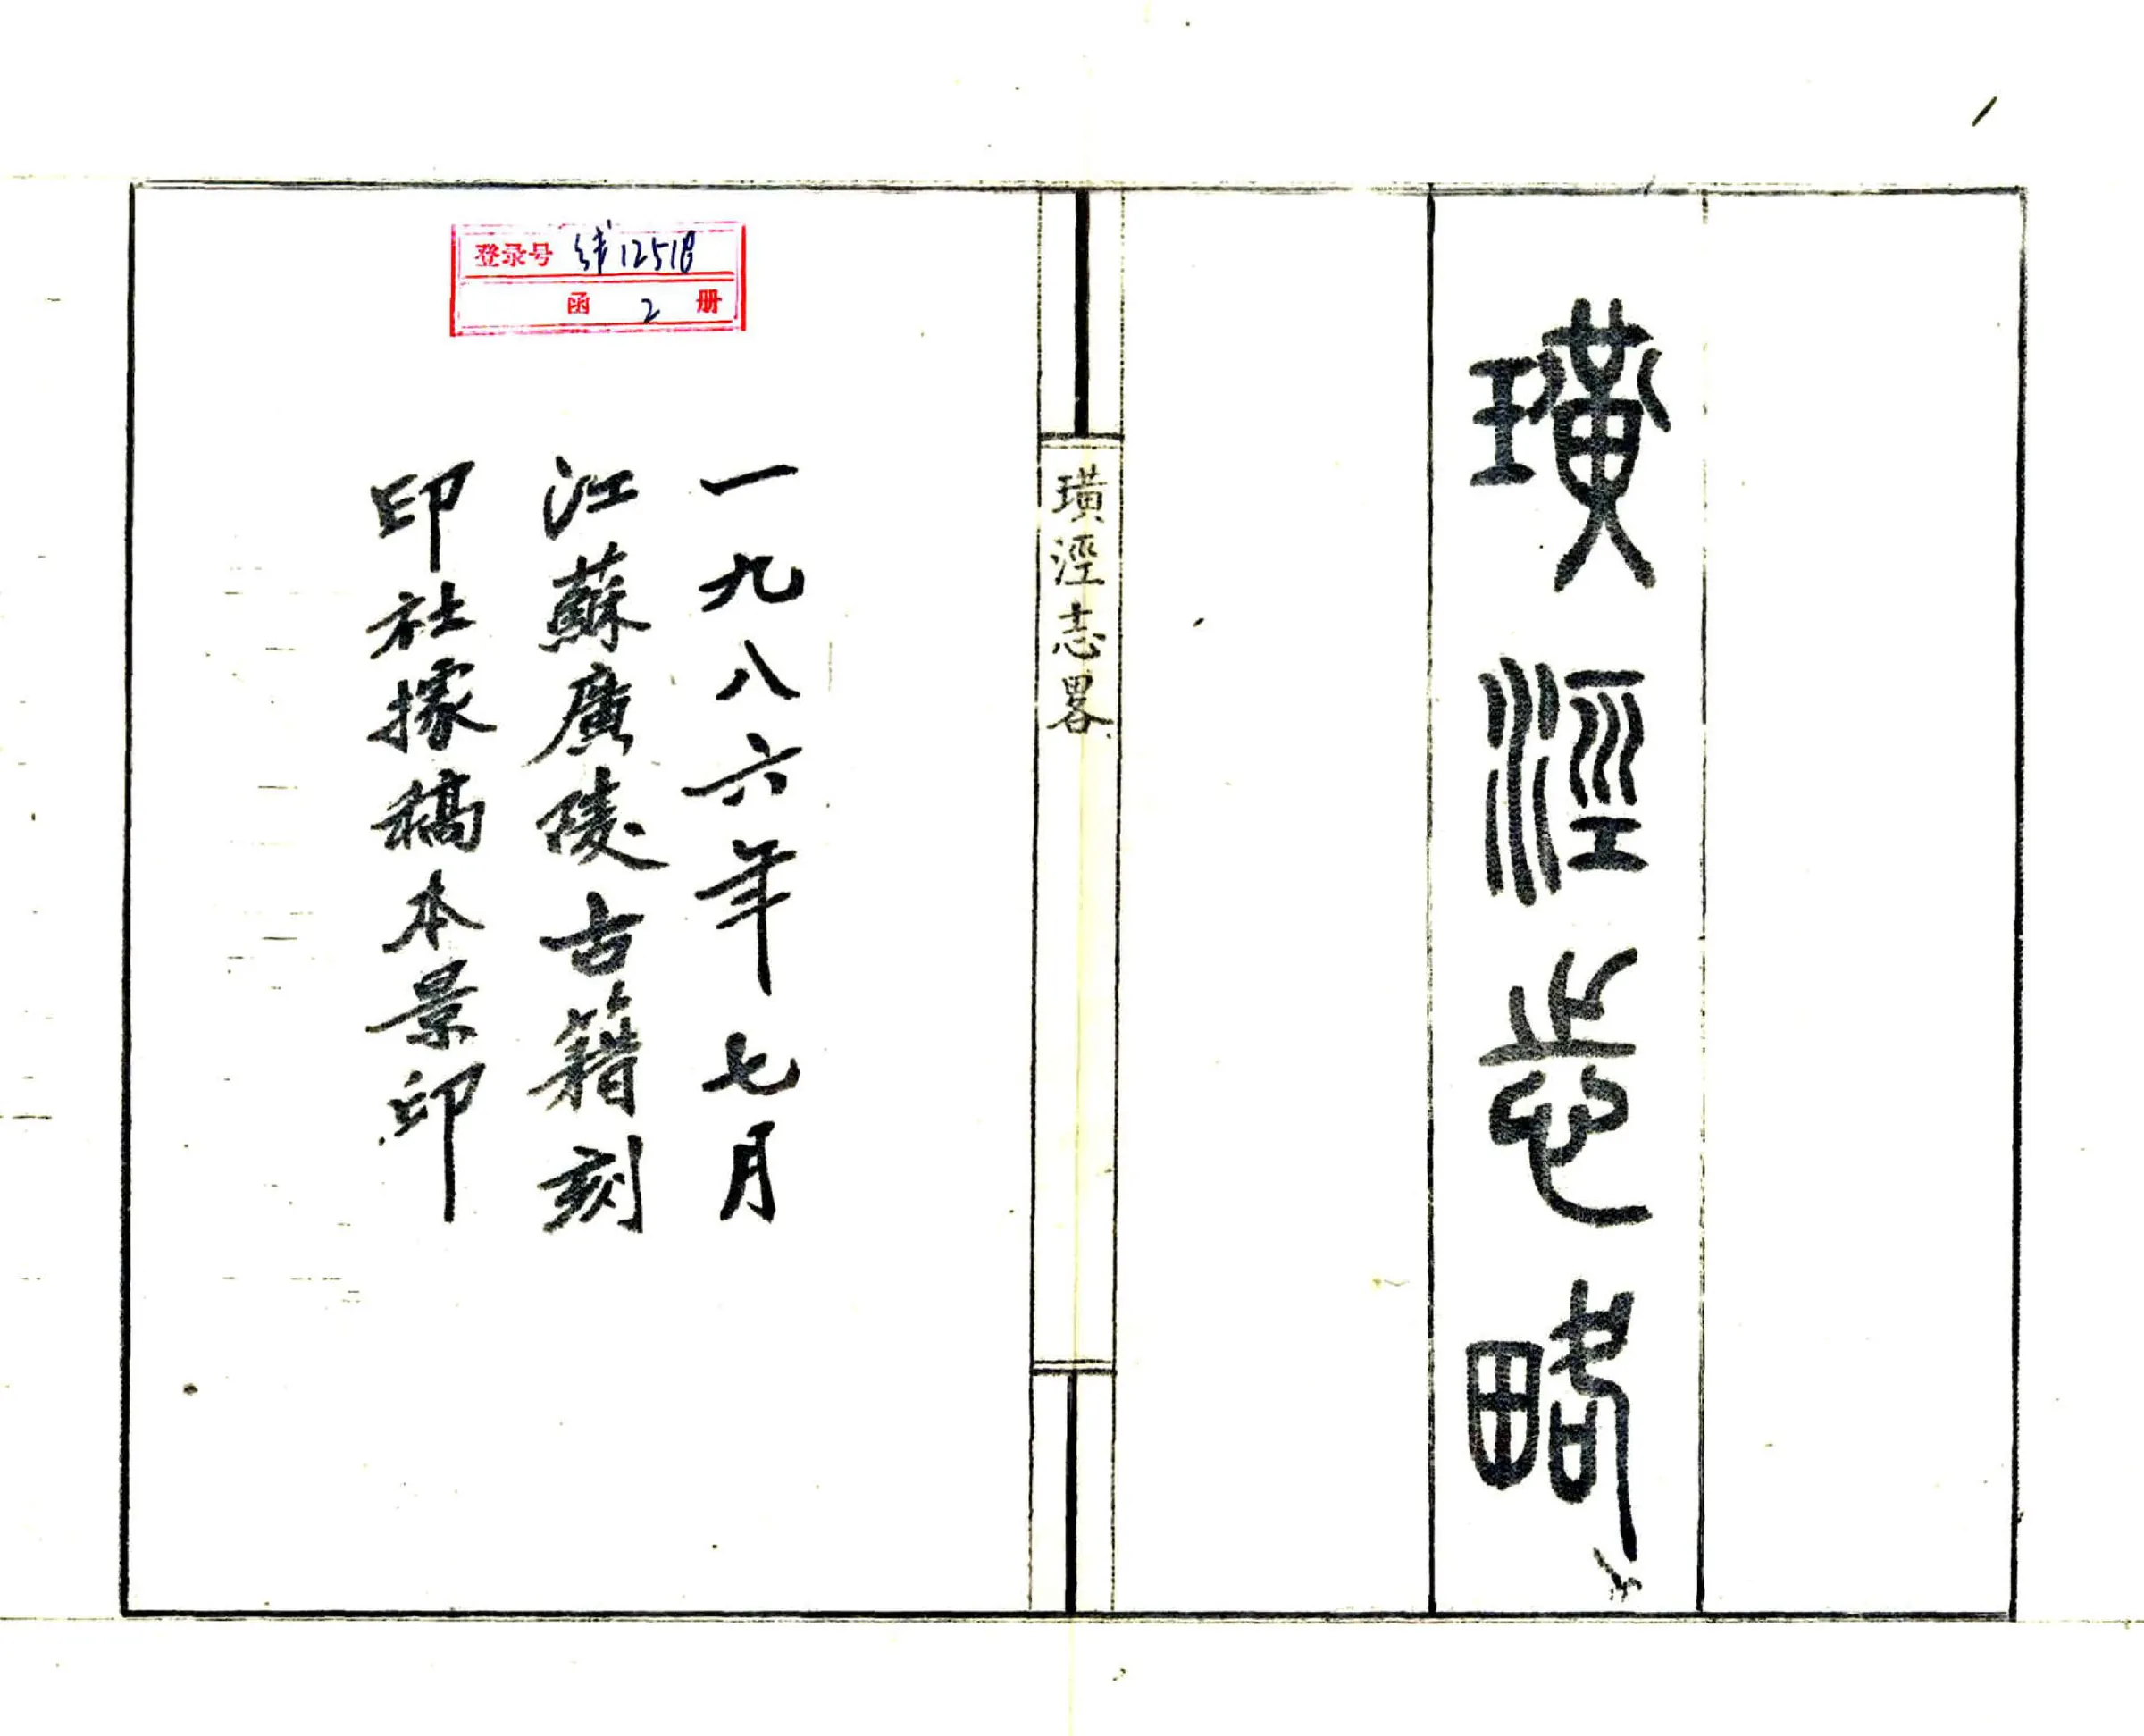 璜涇志略
璜涇志畧
一九八六年七月
江蘇廣陵古籍刻
印社據稿本景印
登录号 线12518
函 2 册